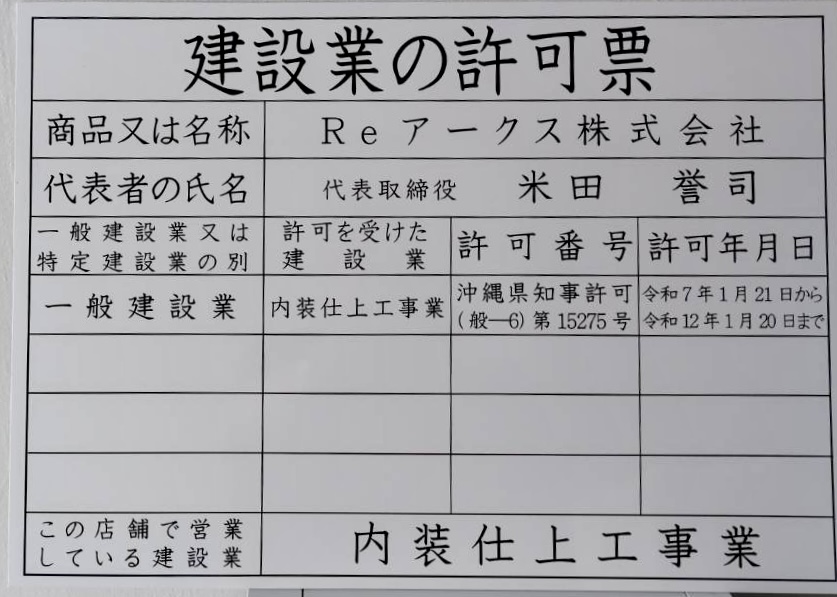 建設業の許可票
商品又は名称 Reアークス株式会社
代表者の氏名 代表取締役 米田 誉司
一般建設業又は
特定建設業の別
許可を受けた
建設業
許可番号
許可年月日
一般建設業
内装仕上工事業
沖縄県知事許可
(般―6)第15275号
令和7年1月21日から
令和12年1月20日まで
この店舗で営業
している建設業
内装仕上工事業